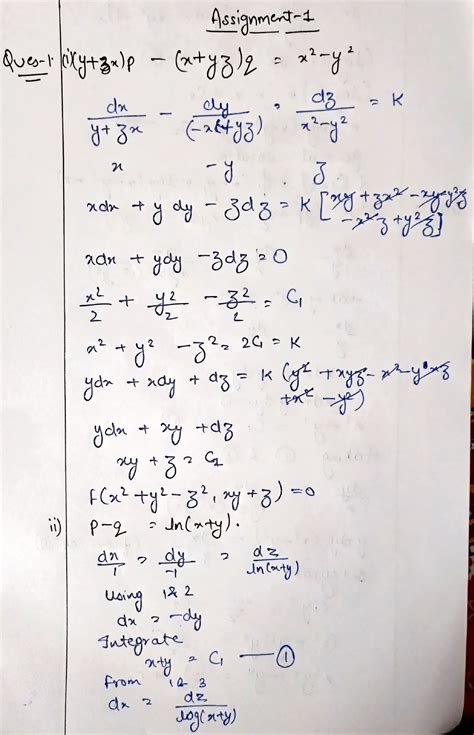 Assignment-1
Ques-1. (i)(y+zx)p - (x+yz)q = x²-y²
dx/(y+zx) - dy/(-x(+yz) = dz/(x²-y²) = K
x -y z
xdx + y dy - zdz = K [xy + zx² - xy - y²z
-x²z + y²z]
xdx + ydy - zdz = 0
x²/2 + y²/2 - z²/2 = C₁
x² + y² - z² = 2C₁ = K
ydx + xdy + dz = K (y² + xyz - x² - yxz
+x² - y²)
ydx + xy + dz
xy + z = C₂
f(x²+y²-z², xy+z) = 0
ii) p-q = ln(x+y).
dx/1 = dy/-1 = dz/ln(x+y)
Using 1&2
dx = -dy
Integrate
x+y = C₁ — ①
From 1& 3
dx = dz/log(x+y)